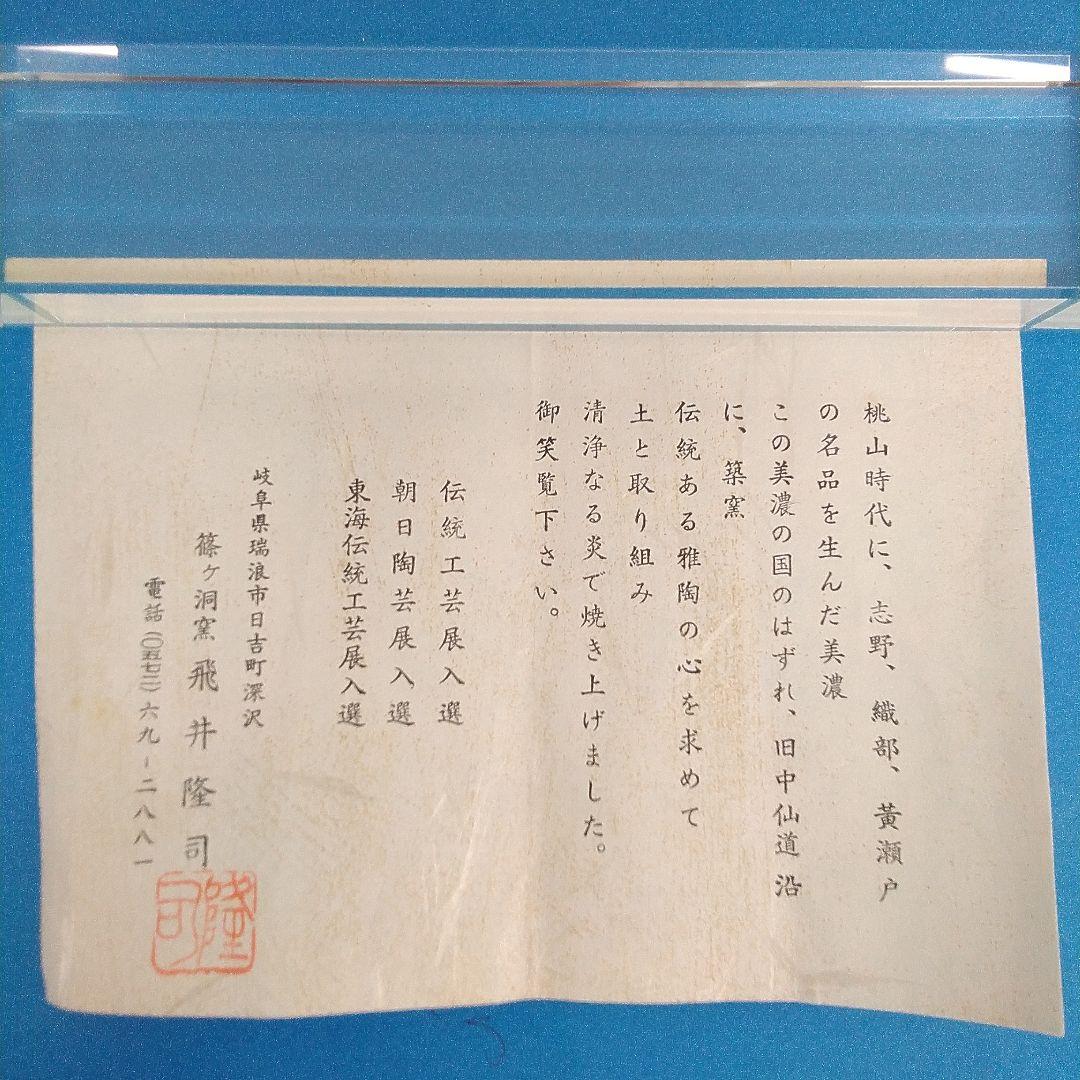 桃山時代に、志野、織部、黃瀬戸
の名品を生んだ美濃
この美濃の国のはずれ、旧中仙道沿
に、築窯
伝統ある雅陶の心を求めて
土と取り組み
清浄なる炎で焼き上げました。
御笑覧下さい。
伝統工芸展入選
朝日陶芸展入選
東海伝統工芸展入選
岐阜県瑞浪市日吉町深沢
篠ヶ洞窯 飛井隆司
電話(〇五七二)六九-二八八一
隆司